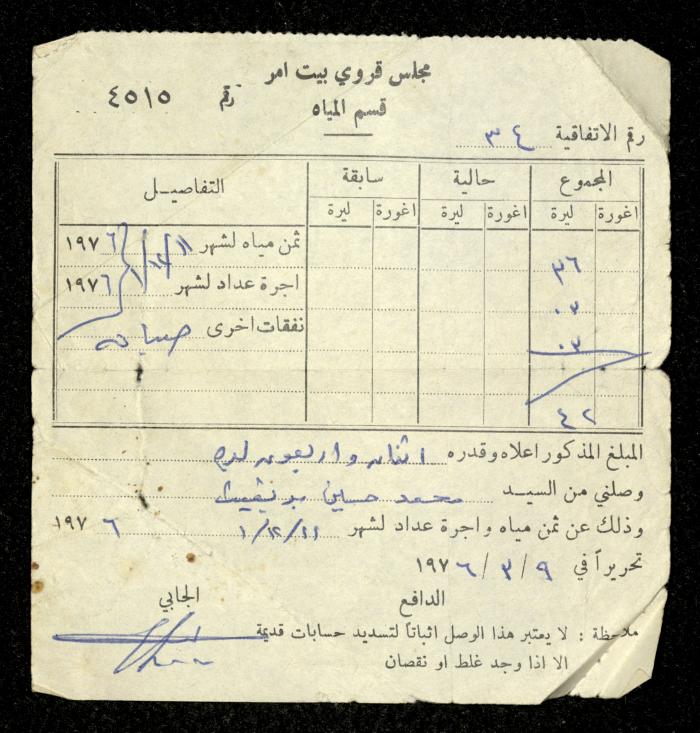 مجلس قروي بيت امر
رقم ٤٥١٥
قسم المياه
رقم الاتفاقية ٣٤
المجموع حالية سابقة التفاصيــل
اغورة ليرة اغورة ليرة اغورة ليرة
ثمن مياه لشهر ١١/١٢/١ ١٩٧٦
٣٦
اجرة عداد لشهر ١٩٧٦
٠٣
نفقات اخرى صيانه
٠٣
٤٢
المبلغ المذكور اعلاه وقدره اثنان واربعون ليره
وصلني من السيــد محمد حسين
وذلك عن ثمن مياه واجرة عداد لشهر ١١/١٢/١ ١٩٧٦
تحريراً في ٩/٣/١٩٧٦
الدافع الجابي
ملاحظة : لا يعتبر هذا الوصل اثباتاً لتسديد حسابات قديمة
الا اذا وجد غلط او نقصان